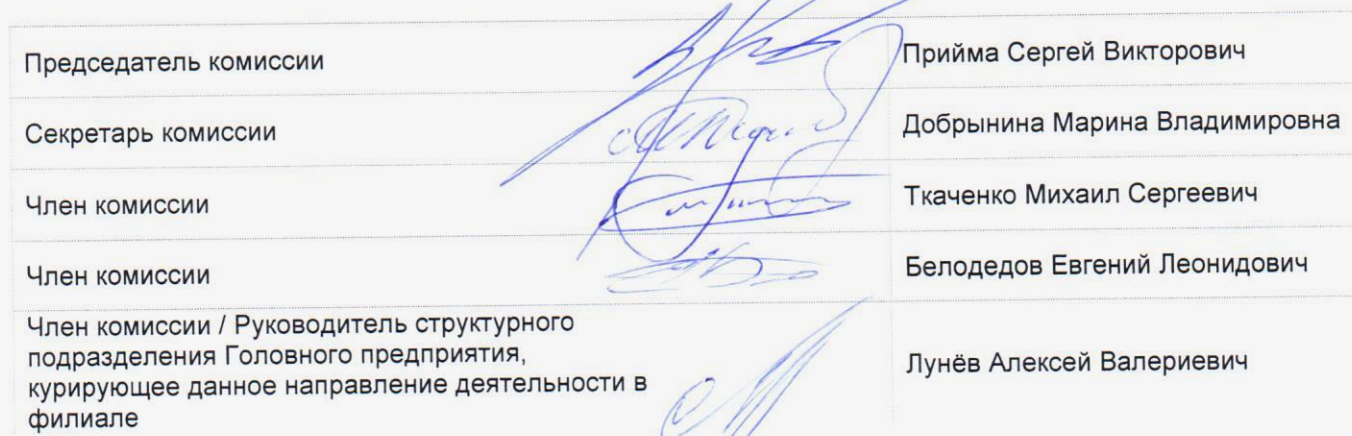 Председатель комиссии Прийма Сергей Викторович
Секретарь комиссии Добрынина Марина Владимировна
Член комиссии Ткаченко Михаил Сергеевич
Член комиссии Белодедов Евгений Леонидович
Член комиссии / Руководитель структурного
подразделения Головного предприятия,
курирующее данное направление деятельности в
филиале
Лунёв Алексей Валериевич